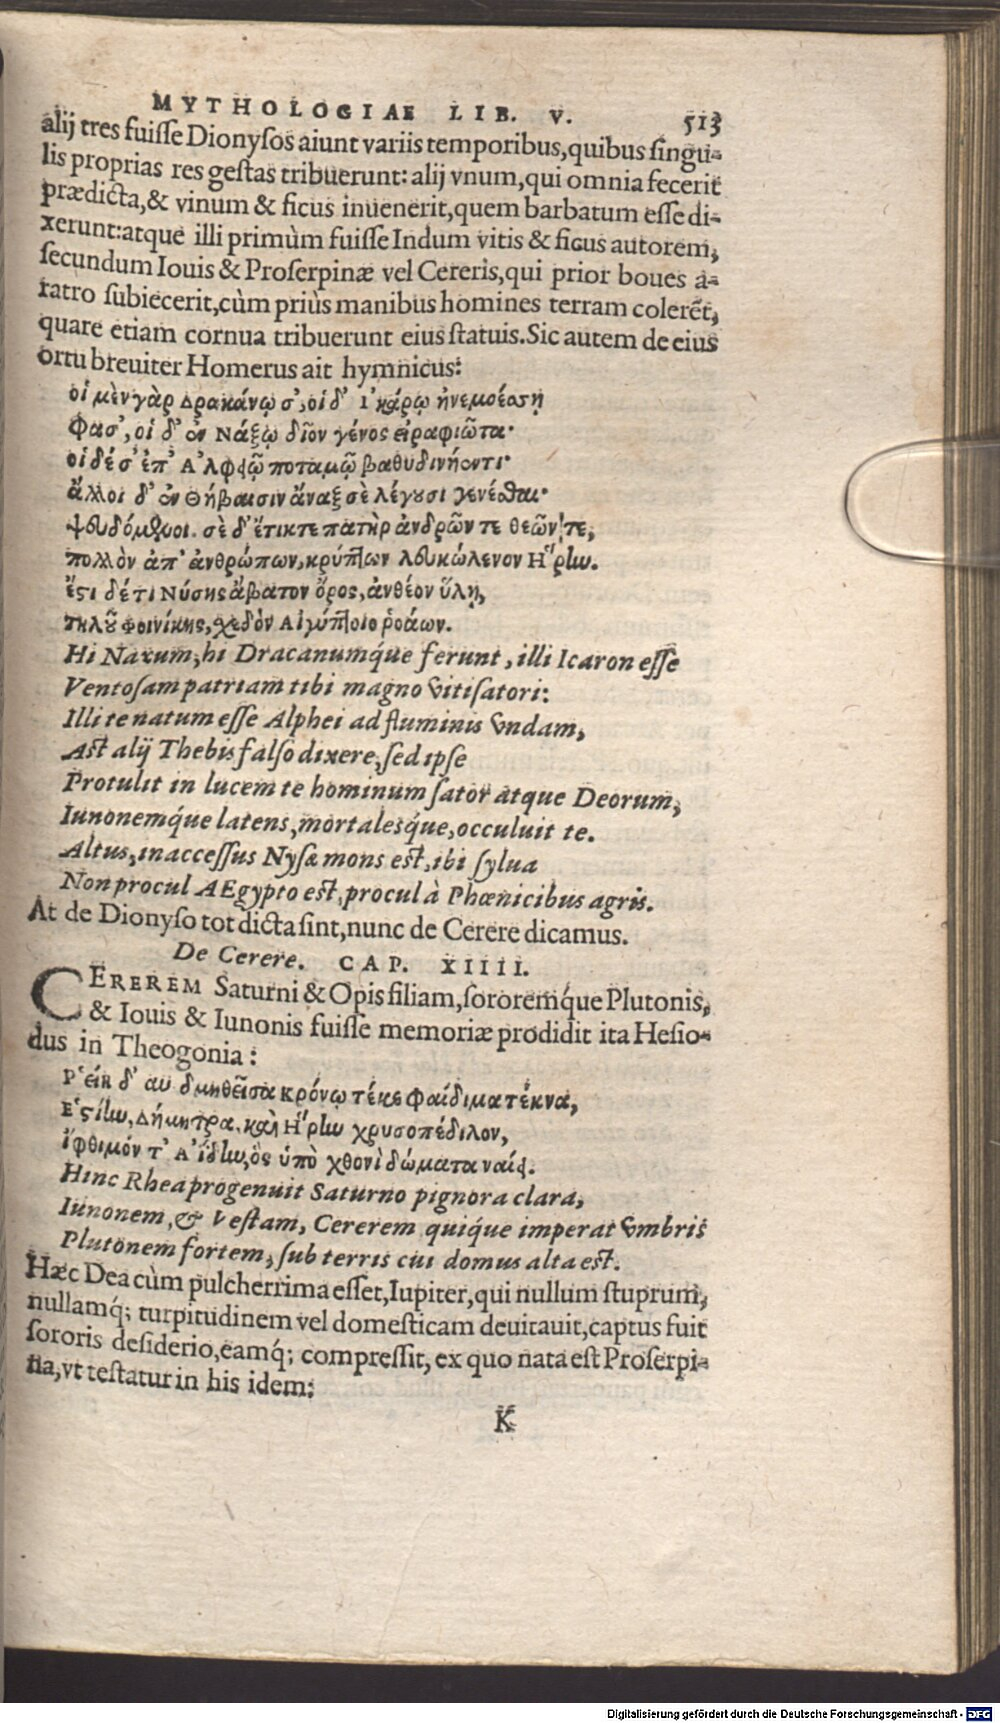 MYTHOLOGIAE LIB. V. 513
alij tres fuiſſe Dionyſos aiunt variis temporibus,quibus ſingu-
lis proprias res geſtas tribuerunt: alij vnum,qui omnia fecerit
prædicta,& vinum & ficus inuenerit,quem barbatum eſſe di-
xerunt:atque illi primùm fuiſſe Indum vitis & ficus autorem,
ſecundum Iouis & Proſerpinæ vel Cereris,qui prior boues a-
ratro ſubiecerit,cùm priùs manibus homines terram colerẽt,
quare etiam cornua tribuerunt eius ſtatuis.Sic autem de eius
ortu breuiter Homerus ait hymnicus:
οἱ μὲν γὰρ Δρακάνῳ σ', οἱ δ' Ἰκάρῳ ἠνεμοέσσῃ
Φασ', οἱ δ' ἐν Νάξῳ δῖον γένος εἰραφιῶτα·
οἱ δέ σ' ἐπ' Ἀλφειῷ ποταμῷ βαθυδινήεντι·
ἄλλοι δ' ἐν Θήβαισιν ἄναξ σὲ λέγουσι γενέσθαι·
ψευδόμενοι. σὲ δ' ἔτικτε πατὴρ ἀνδρῶν τε θεῶν τε,
πολλὸν ἀπ' ἀνθρώπων, κρύπτων λευκώλενον Ἥρην.
ἔστι δέ τι Νύσης ἄβατον ὄρος, ἀνθέον ὕλῃ,
τηλοῦ φοινίκης, σχεδὸν Αἰγύπτοιο ῥοάων.
Hi Naxum, hi Dracanumq́ue ferunt, illi Icaron eſſe
Ventoſam patriam tibi magno vitiſatori:
Illi te natum eſſe Alphei ad fluminis vndam,
Aſt alij Thebis falſo dixere, ſed ipſe
Protulit in lucem te hominum ſator atque Deorum,
Iunonemq́ue latens, mortalesq́ue, occuluit te.
Altus, inacceſſus Nyſæ mons eſt, ibi ſylua
Non procul AEgypto eſt, procul à Phœnicibus agris.
At de Dionyſo tot dicta ſint,nunc de Cerere dicamus.
De Cerere. CAP. XIIII.
CEREREM Saturni & Opis filiam,ſororemq́ue Plutonis,
& Iouis & Iunonis fuiſſe memoriæ prodidit ita Heſio-
dus in Theogonia:
Ῥείη δ' αὖ δμηθεῖσα Κρόνῳ τέκε φαίδιμα τέκνα,
Ἑστίην, Δήμητρα, καὶ Ἥρην χρυσοπέδιλον,
ἴφθιμόν τ' Ἀΐδην, ὃς ὑπὸ χθονὶ δώματα ναίει.
Hinc Rhea progenuit Saturno pignora clara,
Iunonem, & Veſtam, Cererem quiq́ue imperat vmbris
Plutonem fortem, ſub terris cui domus alta eſt.
Hæc Dea cùm pulcherrima eſſet,Iupiter,qui nullum ſtuprum,
nullamq́; turpitudinem vel domeſticam deuitauit,captus fuit
ſororis deſiderio,eamq́; compreſſit, ex quo nata eſt Proſerpi-
na,vt teſtatur in his idem:
K
Digitalisierung gefördert durch die Deutsche Forschungsgemeinschaft - DFG